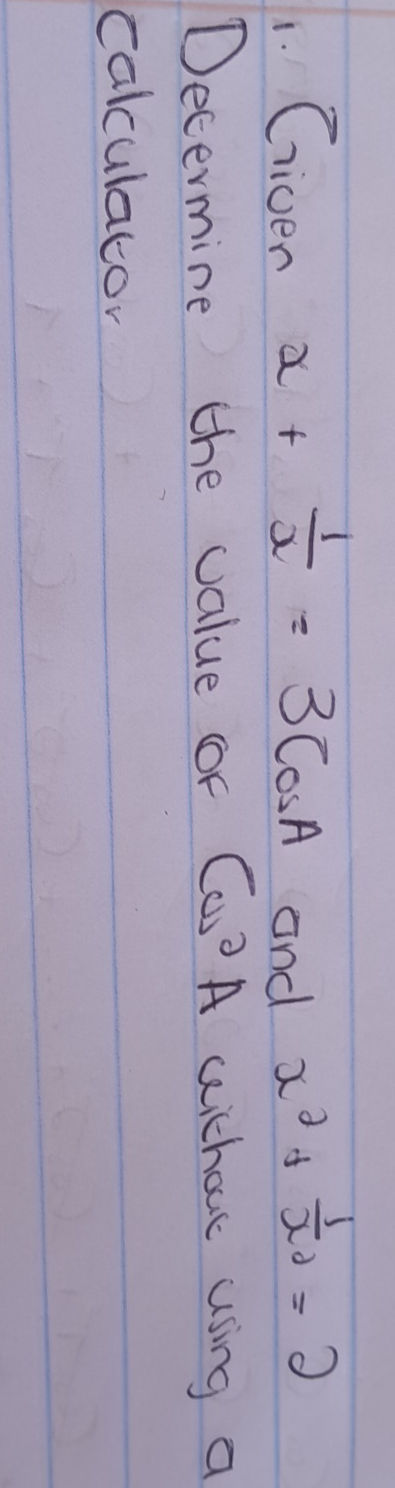 1. Given x + 1/x = 3CosA and x² + 1/x² = 2
Determine the value of Cos²A without using a
calculator